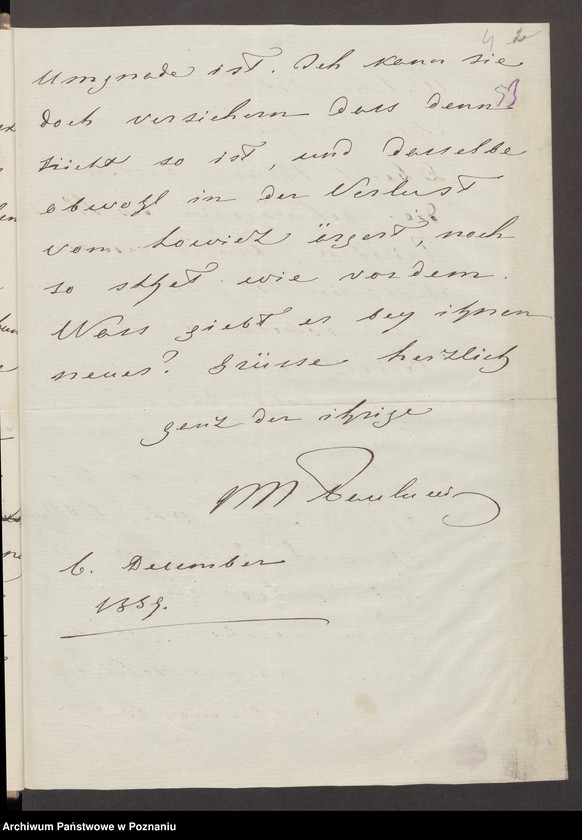 4 2
53
Umgnade ist. Ich kann sie
doch versichern dass denn
nicht so ist, und dasselbe
obwohl in der Verlust
vom Lowicz ärgert, noch
so sthet wie vordem.
Wass giebt es bey ihnen
neues? Grüsse herzlich
ganz der ihrige
M
6. December
1859.
Archiwum Państwowe w Poznaniu